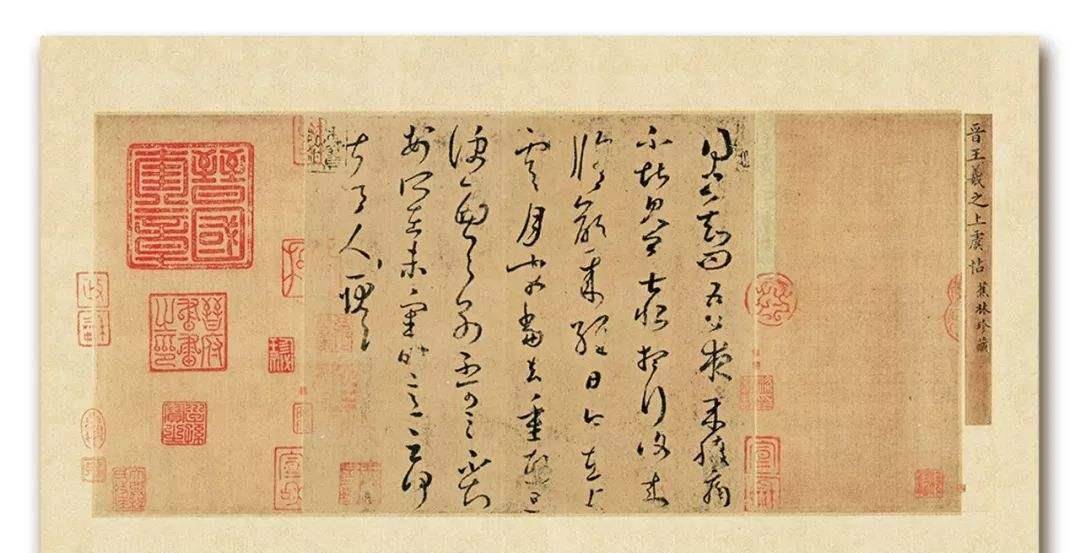 晉王羲之上虞帖 蕉林珍藏
得書知問吾夜來腹痛
不堪見卿甚恨想行復來
脩齡來經日今在上
虞月末當去重熙旦
便西與別不可言不知
安所在未審時意云何
甚令人耿耿
晉國
奎章
晉府
書畫
之印